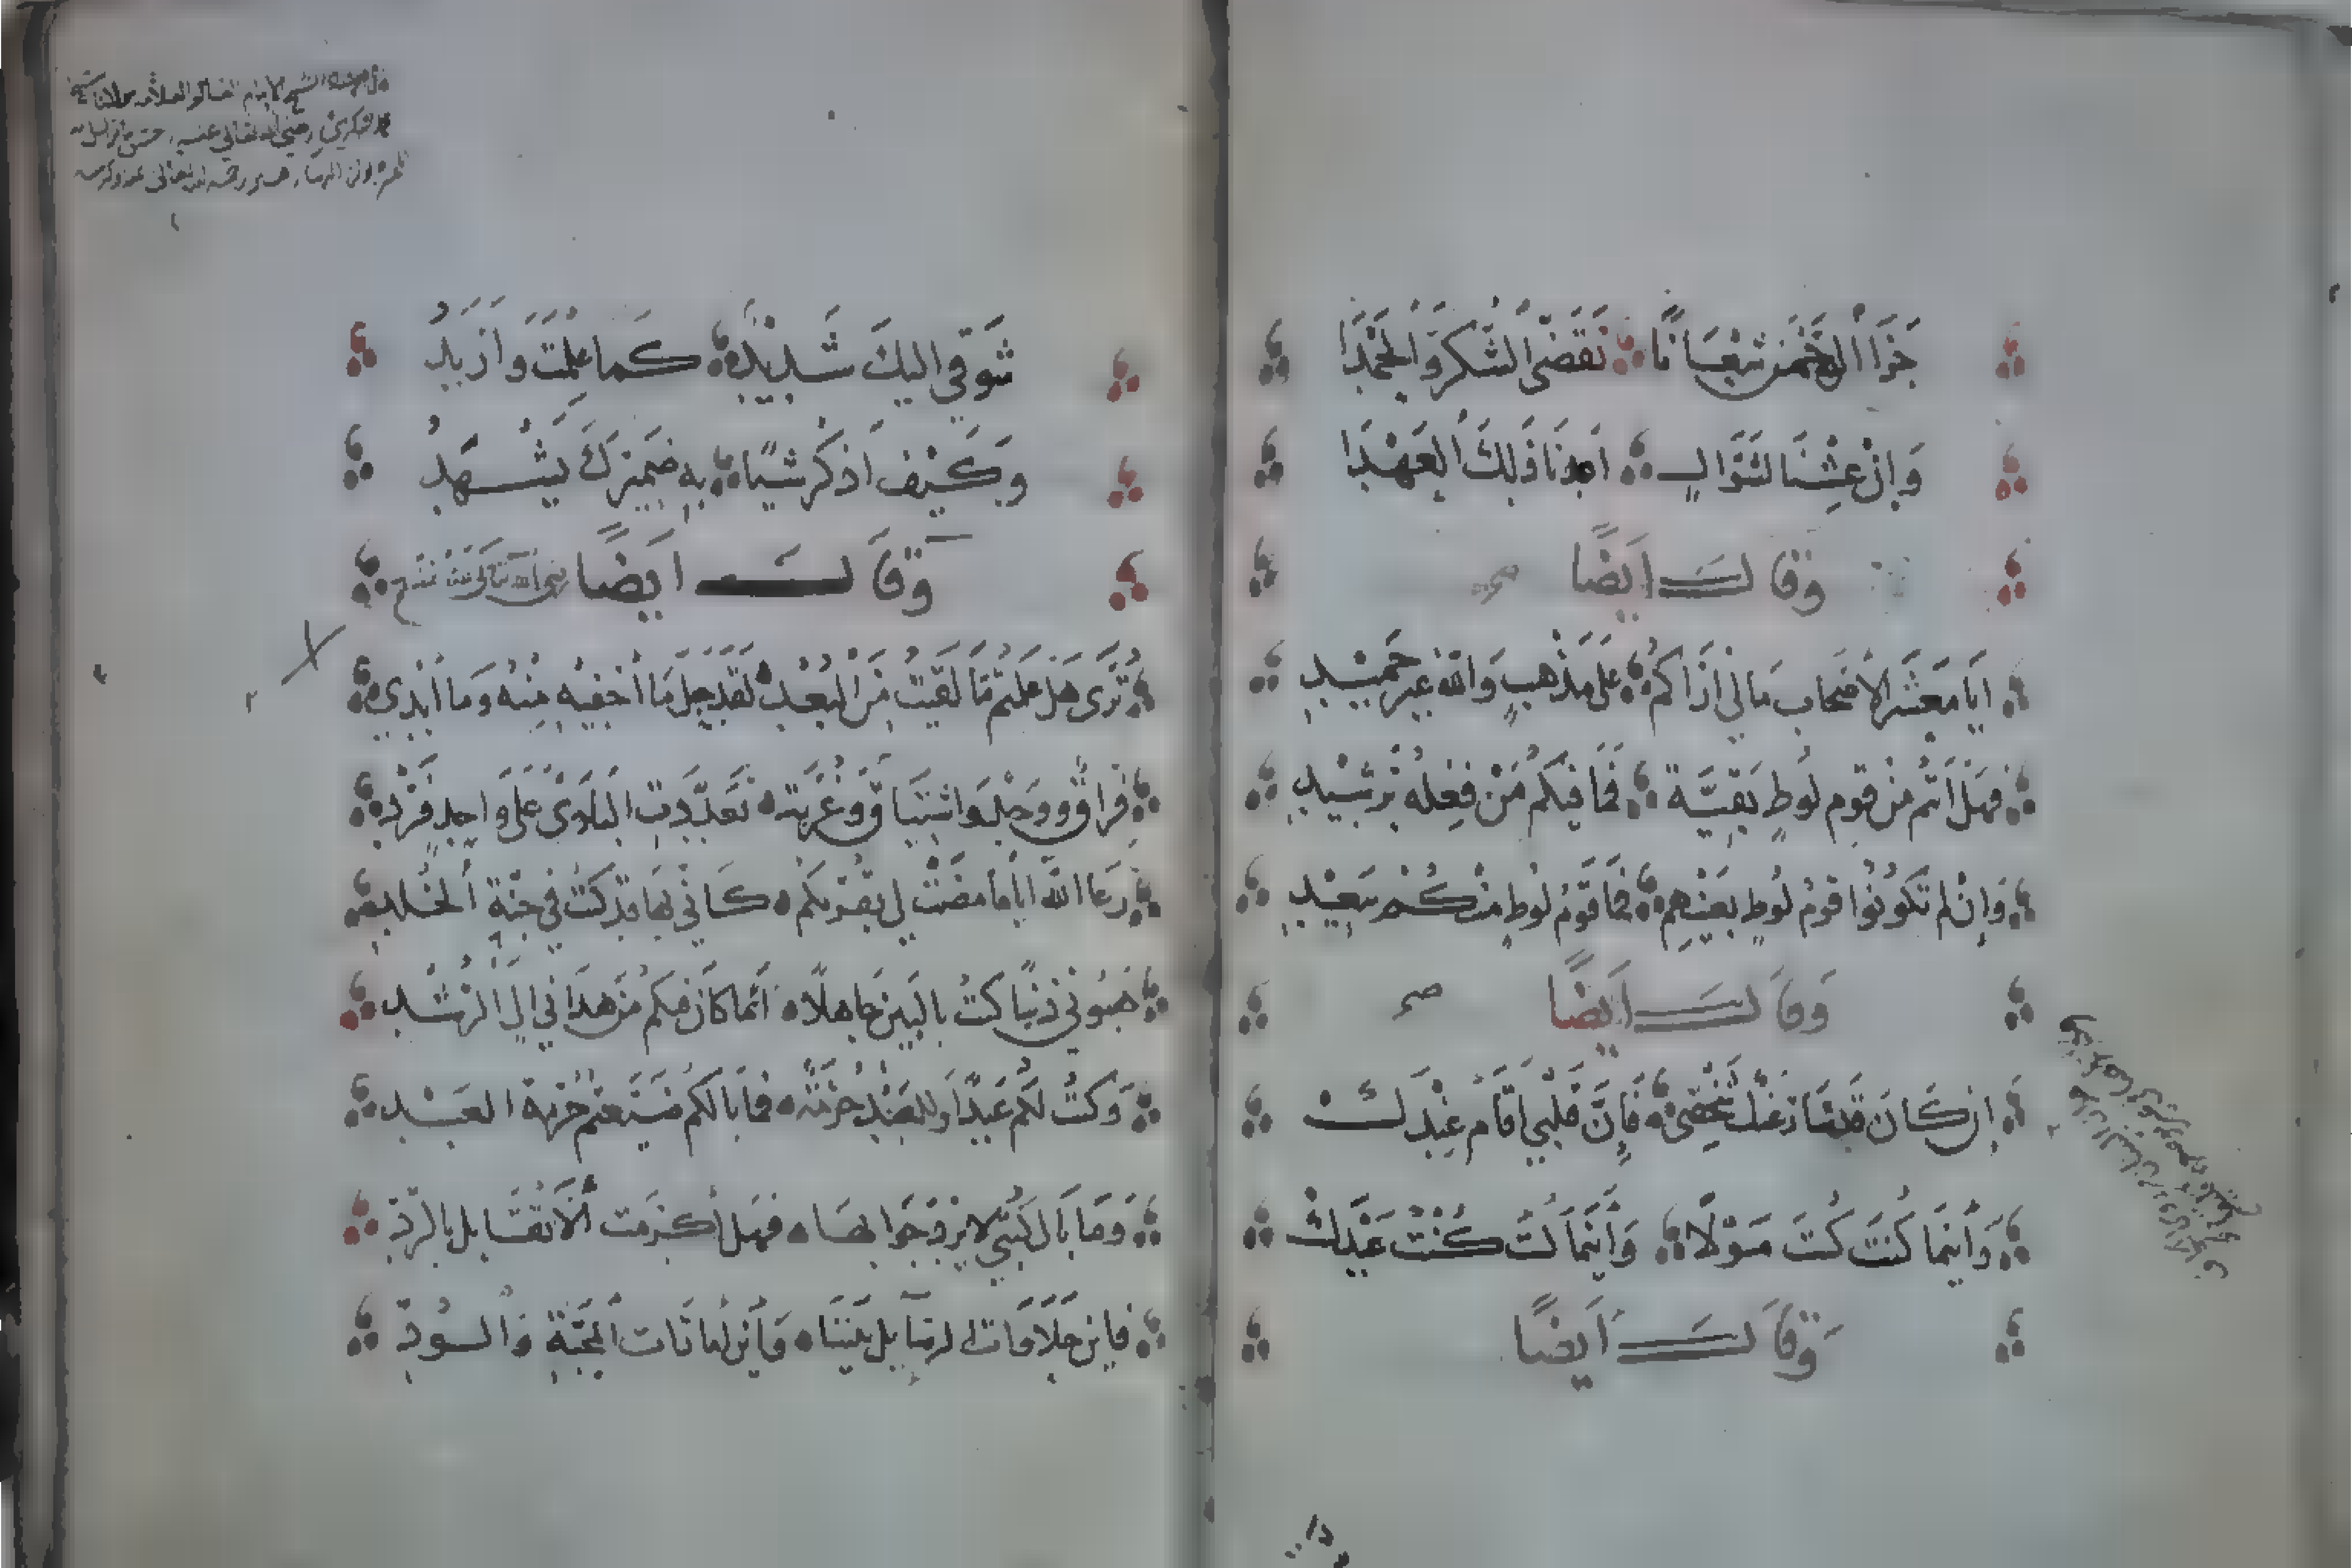 جَزَا الرَّحْمَن شَعْبَانًا نَقَضَى الشُّكرَ وَالحَمْدَا
وَإِنْ عِشْنَا لشَوَّالٍ اعدنَا ذَلِكَ العَهْدَا
وَقَالَ أَيضًا
أيَا مَعْشَر الأصْحَاب مَا لي أرَاكمُ عَلى مَذْهبٍ وَالله غير حَميْدِ
فهَل أنتُم منْ قوم لُوطٍ بَقيَّة فمَا فيكمُ مَنْ فِعلُه برَشيْدِ
وَإنْ لم تكونُوا قومُ لوطٍ بعَيْنهِم فمَا قَومُ لوطٍ منْكُم ببَعيْدِ
وَقَالَ أَيضًا صح
إن كَانَ قد سَارَ عَنْكَ شَخْصِي فَإِنَّ قَلْبِي أقَامَ عِنْدَكْ
وَأينَمَا كُنتَ كُنتَ مَوْلًا وَأينَمَا كُنتُ كُنْتُ عَبْدَكْ
وَقَالَ أَيضًا
شَوقي اليكَ شَدِيْدٌ كَما عَلِمْتَ وَأزيَدُ
وَكَيْفَ أذكُر شَيًا بهِ ضَمِيْرُكَ يَشْهَدُ
وَقَالَ أيضًا
تُرَى هَل عَلمتُم مَا لَقَيتُ مِنَ البُعْدِ لَقَد جَلَّ مَا أخفيْه مِنْهُ وَما أبْدِي
فِرَاقٌ وَوَجْدٌ وَاشتيَاقٌ وَغُربَة تعَدَّدتِ البَلوَى عَلى وَاحِدٍ فَرْدِ
رَعَا الله أيامًا مضَتْ لي بقُرْبكُم كَأني بهَا قد كنتُ في جَنَّةِ الخُلدِ
هَبُوني ذنبًا كنتُ بالبَين جَاهلًا أمَا كانَ فيكم مَن هَدَاني إلى الرُشدِ
وَكنتُ لَكُم عَبدًا وَللعَبْد حُرمَة فمَا بَالكُم ضَيَّعتُم حُرمَة العَبْدِ
وَمَا بَال كُتبي لا يردّ جَوَابهَا فهَل أكرمَت ألَّا تقَابل بالردِّ
فاين حَلَاوَات الرسَايل بيننَا وَأين أمَارَات المحبَّة وَالوُدِّ